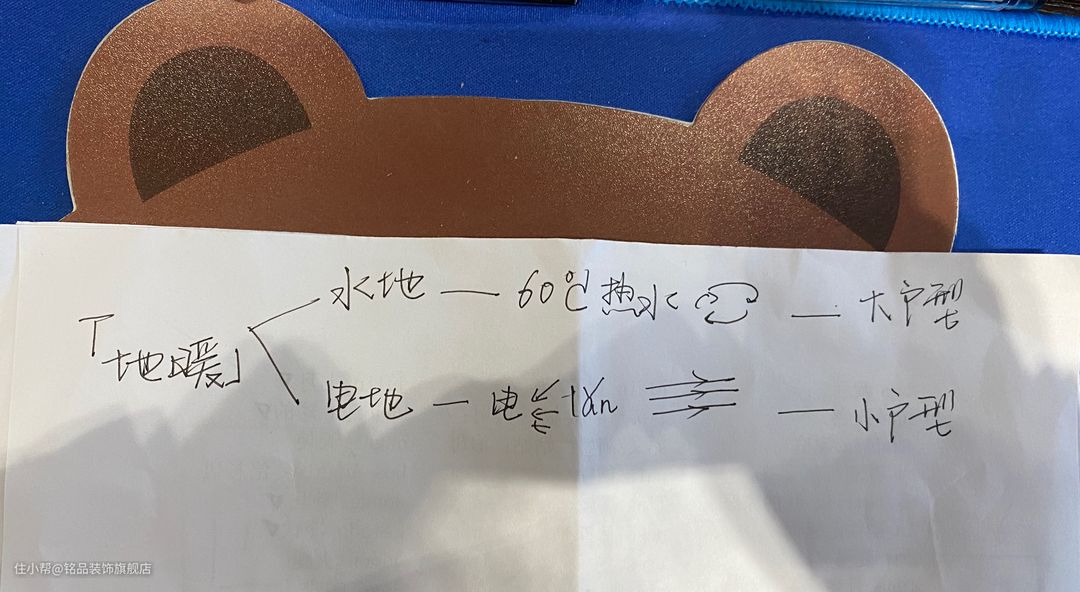 水地 — 60℃热水 — 大户型
「地暖」
电地 — 电 — 小户型
住小帮@铭品装饰旗舰店